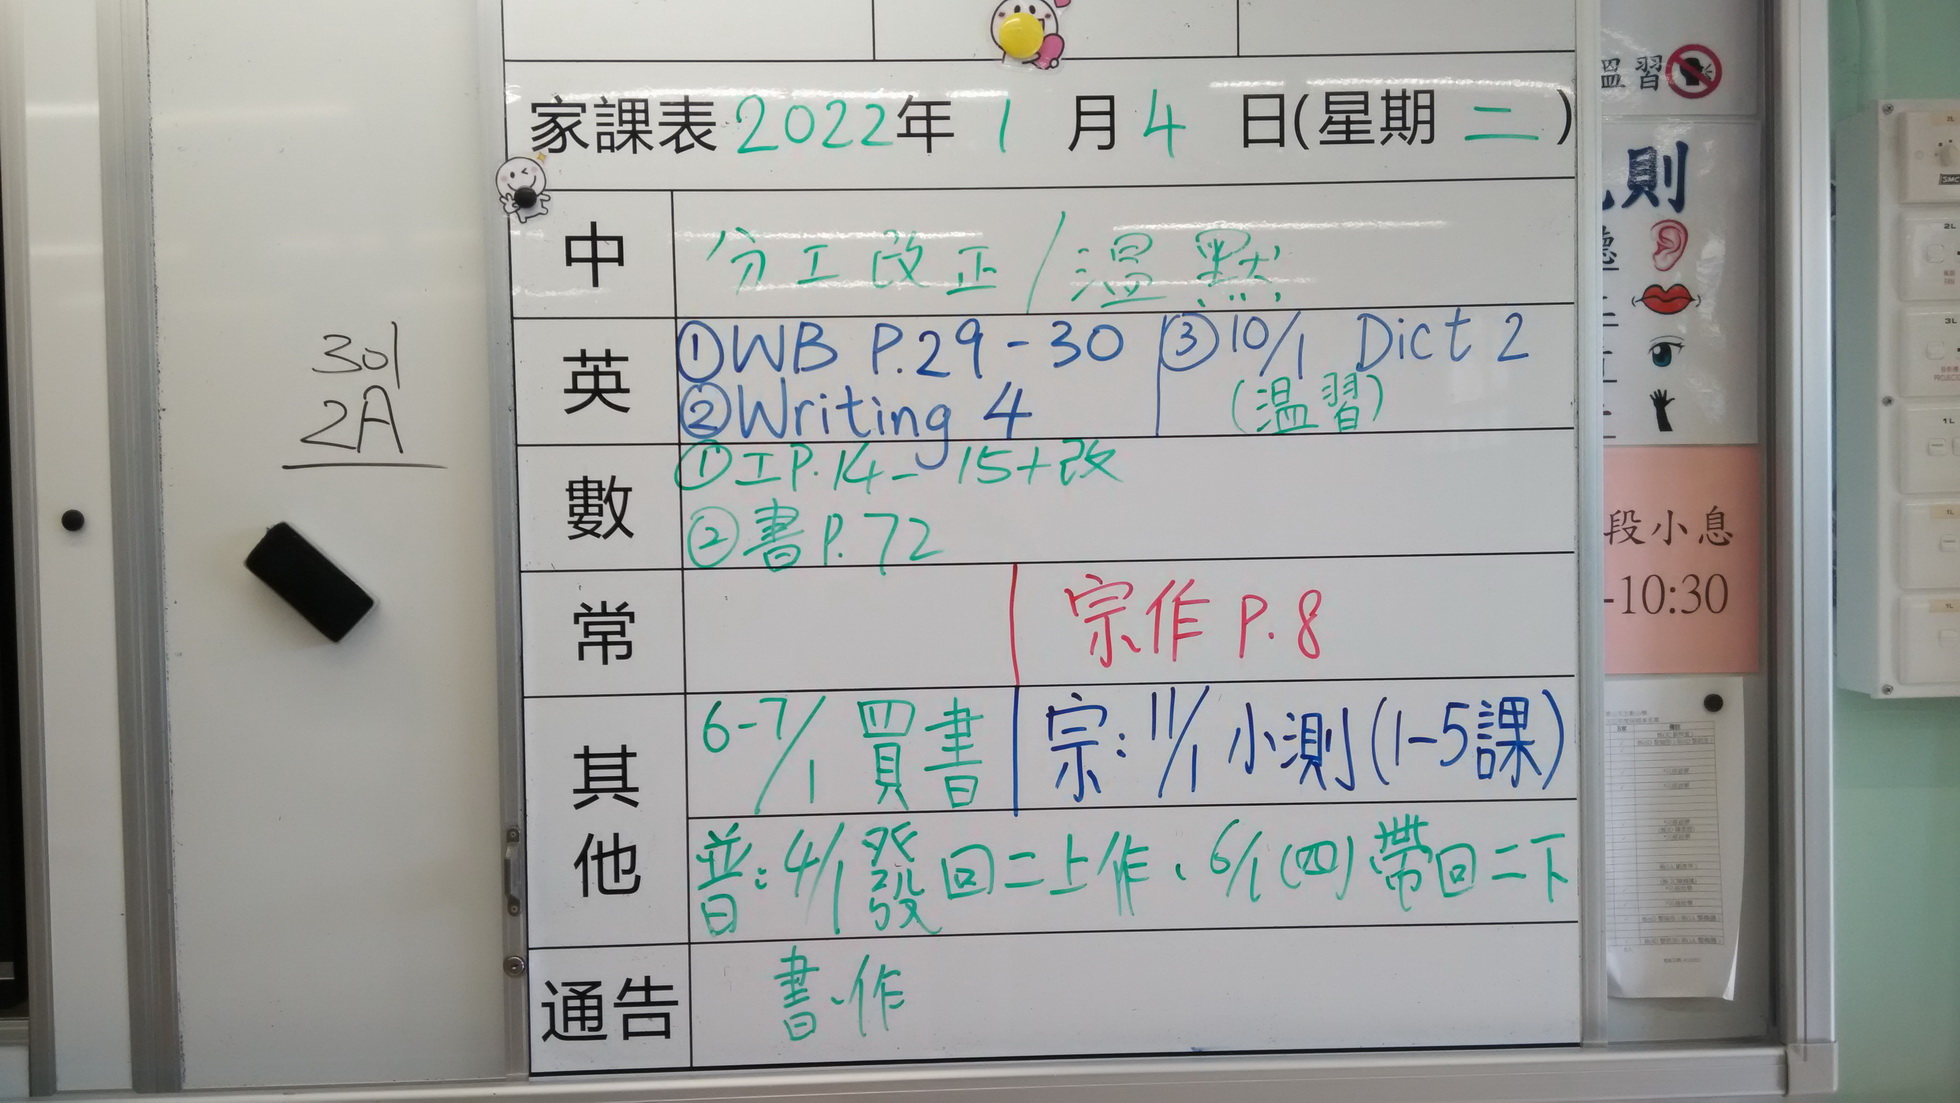 家課表 2022年 1 月 4 日(星期 二 )
中 分工改正 / 溫默
英 ①WB P.29-30 ③10/1 Dict 2
②Writing 4 (溫習)
數 ①工P.14-15+改
②書P.72
常 宗作 P.8
其他 6-7/1 買書 宗:11/1 小測(1-5課)
普:4/1發回二上作、6/1(四)帶回二下
通告 書、作
301
2A
溫習
則
段小息
-10:30